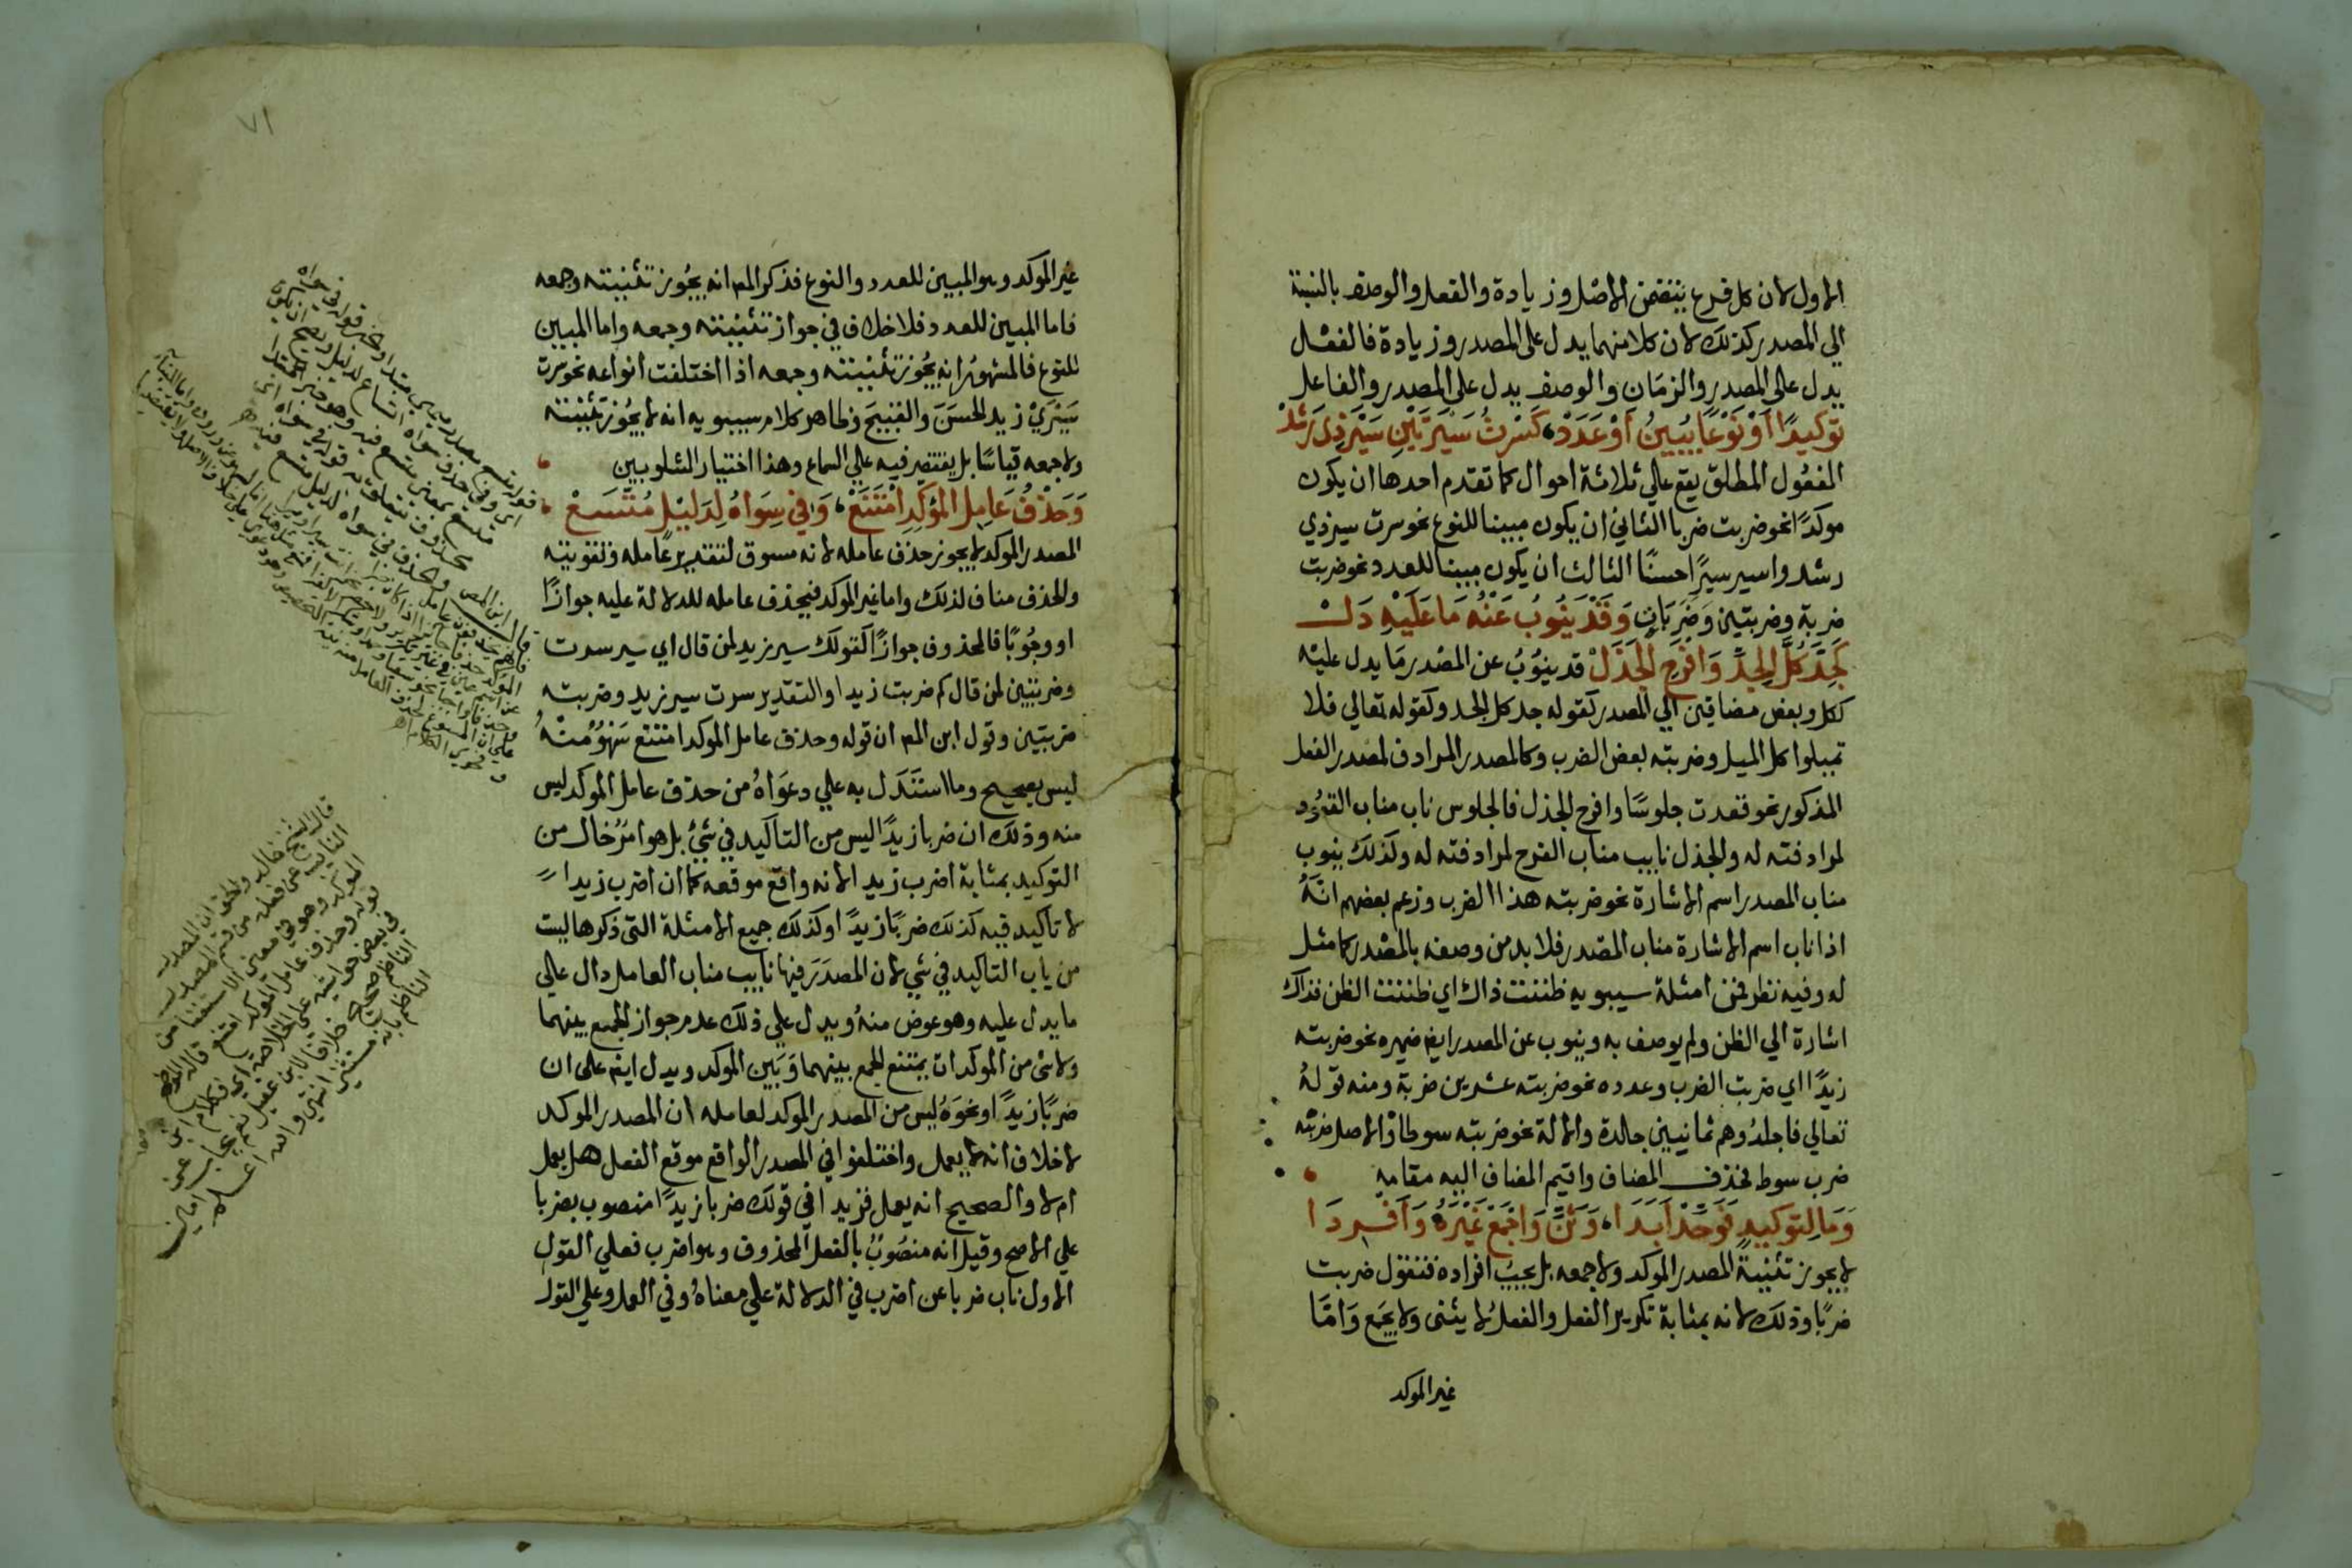 الاول لان كل فرع يتضمن الاصل وزيادة والفعل والوصف بالنسبة
الي المصدر كذلك لان كلا منهما يدل على المصدر وزيادة فالفعل
يدل على المصدر والزمان والوصف يدل على المصدر والفاعل
توكيدًا اَوْ نَوْعًا يُبينُ اَوْ عَدَدْ كَسْرتُ سَيْرَتَيْنِ سَيْرَ ذِى رَشَدْ
المفعُول المطلق يقع علي ثلاثة احوال كما تقدم احدها ان يكون
موكدًا نحو ضربت ضربا الثاني ان يكون مبينا للنوع نحو سرت سير ذي
رشد واسير سيرًا حسنًا الثالث ان يكون مبينا للعدد نحو ضربت
ضربة وضربتين وَضَرَبَاتٍ وَقَدْ يَنُوبُ عَنْهُ مَا عَلَيْهِ دَلْ
كَجِدَّ كُلَّ الجِدِّ وَافرَحِ الجَذَلْ قد ينوُبُ عن المصْدر مَا يدل عليْه
ككل وبعض مضافين الي المصدر كقوله جد كل الجد وكقوله تعالي فلا
تميلوا كل الميل وضربته بعض الضرب وكالمصدر المرادف لمصدر الفعل
المذكور نحو قعدت جلوسًا وافرح الجذل فالجلوس ناب مناب القعُود
لمرادفته له والجذل نايب مناب الفرح لمرادفته له وكذلك ينوب
مناب المصدر اسم الاشارة نحو ضربته هذا الضرب وزعم بعضهم انهُ
اذا ناب اسم الاشارة مناب المصْدر فلا بد من وصفه بالمصْدر كما مثل
له وفيه نظر فمن امثلة سيبويه ظننت ذاك اي ظننت الظن فذاك
اشارة الي الظن ولم يوصف به وينوب عن المصدر ايضا ضميره نحو ضربته
زيدًا اي ضربت الضرب وعدده نحو ضربته عشرين ضربة ومنه قولهُ
تعالي فاجلدُوهم ثمانيين جلدة والالة نحو ضربته سوطا والاصل ضربته
ضرب سوط فحذف المضاف واقيم المضاف اليه مقامه
وَمَا لِتوكيدٍ فَوَحِّدْ اَبَدَا وَثَنِّ وَاجْمَعْ غَيْرَهُ وَاَفْرِدَا
لا يجوز تثنيةُ المصدر الموكد ولا جمعه بل يجبُ افراده فتقول ضربت
ضربًا وذلك لانه بمثابة تكرير الفعل والفعلُ لا يثنى ولا يجمَع وَامَّا
غير الموكد
٧١
غير الموكد وهو المبين للعدد والنوع فذكر المص انه يجُوز تثنيته وجمعه
فاما المبين للعدد فلا خلاف في جواز تثنيته وجمعه واما المبين
للنوع فالمشهوُر انه يجُوز تثنيته وجمعه اذا اختلفت انواعه نحو سرت
سَيْريْ زيد الحسَنَ والقبيحَ وظاهر كلام سيبويه انه لا يجُوز تثنيته
ولا جمعه قياسًا بل يقتصر فيه علي السماع وهذا اختيار الشلوبين
وَحَذْفُ عَامِلِ المُؤكِدِ امْتَنَعْ وَفي سِوَاهُ لِدَليْلٍ مُتَّسَعْ
المصدر الموكد لا يجوز حذف عامله لانه مسوق لتقرير عامله وتقويته
والحذف مناف لذلك واما غير الموكد فيحذف عامله للدلالة عليه جوازًا
او وجُوبًا فالمحذوف جوازًا كقولك سير زيد لمن قال اي سير سرت
وضربتين لمن قال كم ضربت زيدا والتقدير سرت سير زيد وضربته
ضربتين وقول ابن المص ان قوله وحذف عامل الموكد امتنع سَهْوُ منْهُ
ليس بصحيح وما استَدَل به علي دعوَاهُ من حذف عامل الموكد ليس
منه وذلك ان ضربا زيدًا ليس من التاكيد في شيْءٍ بل هو امرُ خال من
التوكيد بمثابة اضرب زيدا لانه واقع موقعه كما ان اضرب زيدا
لا تاكيد فيه كذلك ضربًا زيدًا وكذلك جميع الامثلة التي ذكرها ليست
من باب التاكيد في شي لان المصدَرَ فيها نايب مناب العامل دال علي
ما يدل عليه وهو عوض منهُ ويدل علي ذلك عدم جواز الجمع بينهما
ولا شى من الموكدات يمتنع الجمع بينهما وَبَين الموكد ويدل ايضا على ان
ضربًا زيدًا ونحوَهُ ليس من المصدر الموكد لعامله ان المصدر الموكد
لا خلاف انه لا يعمل واختلفوا في المصدر الواقع موقع الفعل هل يعمل
ام لا والصحيح انه يعمل فزيدا في قولك ضربا زيدًا منصوب بضربا
علي الاصح وقيل انه منصُوبُ بالفعل المحذوف وهو اضرب فعلي القول
الاول ناب ضربا عن اضرب في الدلالة علي معناهُ وفي العمل وعلي القول